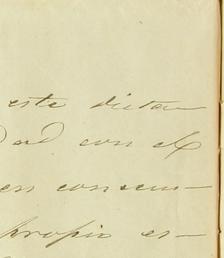 este dicta
dad con el
en consen-
propia es-